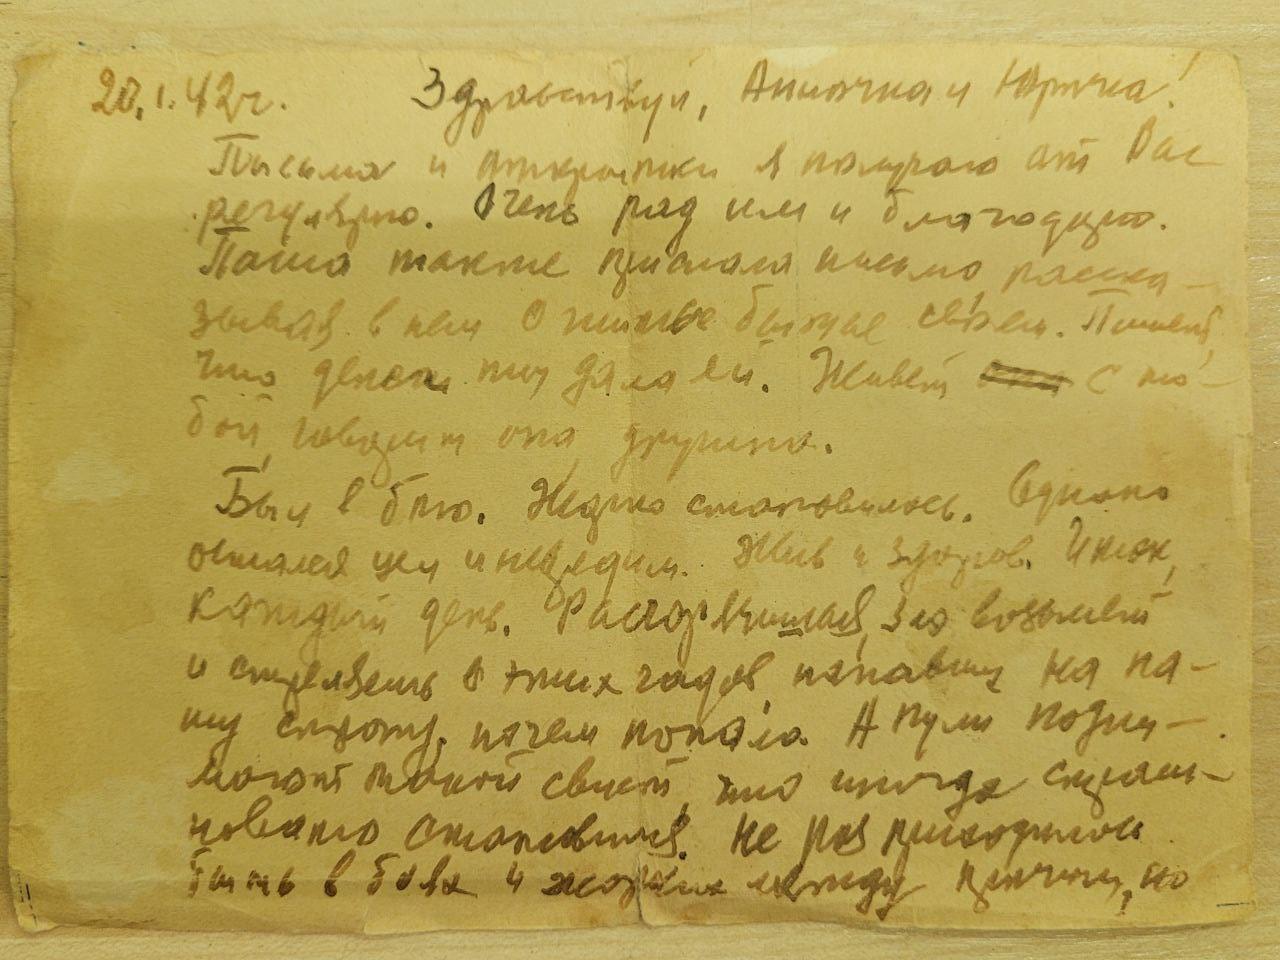 20.I.42 г. Здравствуй, Аничка и Юрочка!
Письма и открытки я получаю от Вас
регулярно. Очень рад им и благодарю.
Паша также прислала письмо расска-
зывая в нем о житье бытье своем. Пишет,
что деньги ты дала ей. Живет с то-
бой, говорит она, дружно.
Был в бою. Жарко становилось. Однако
остался цел и невредим. Жив и здоров. И так,
каждый день. Разгорячишься, зло возьмет
и стреляешь в этих гадов, напавших на на-
шу страну, почем попало. А пули подни-
мают такой свист, что иногда страш-
новато становится. Не раз приходилось
быть в боях и жарких между прочим, но